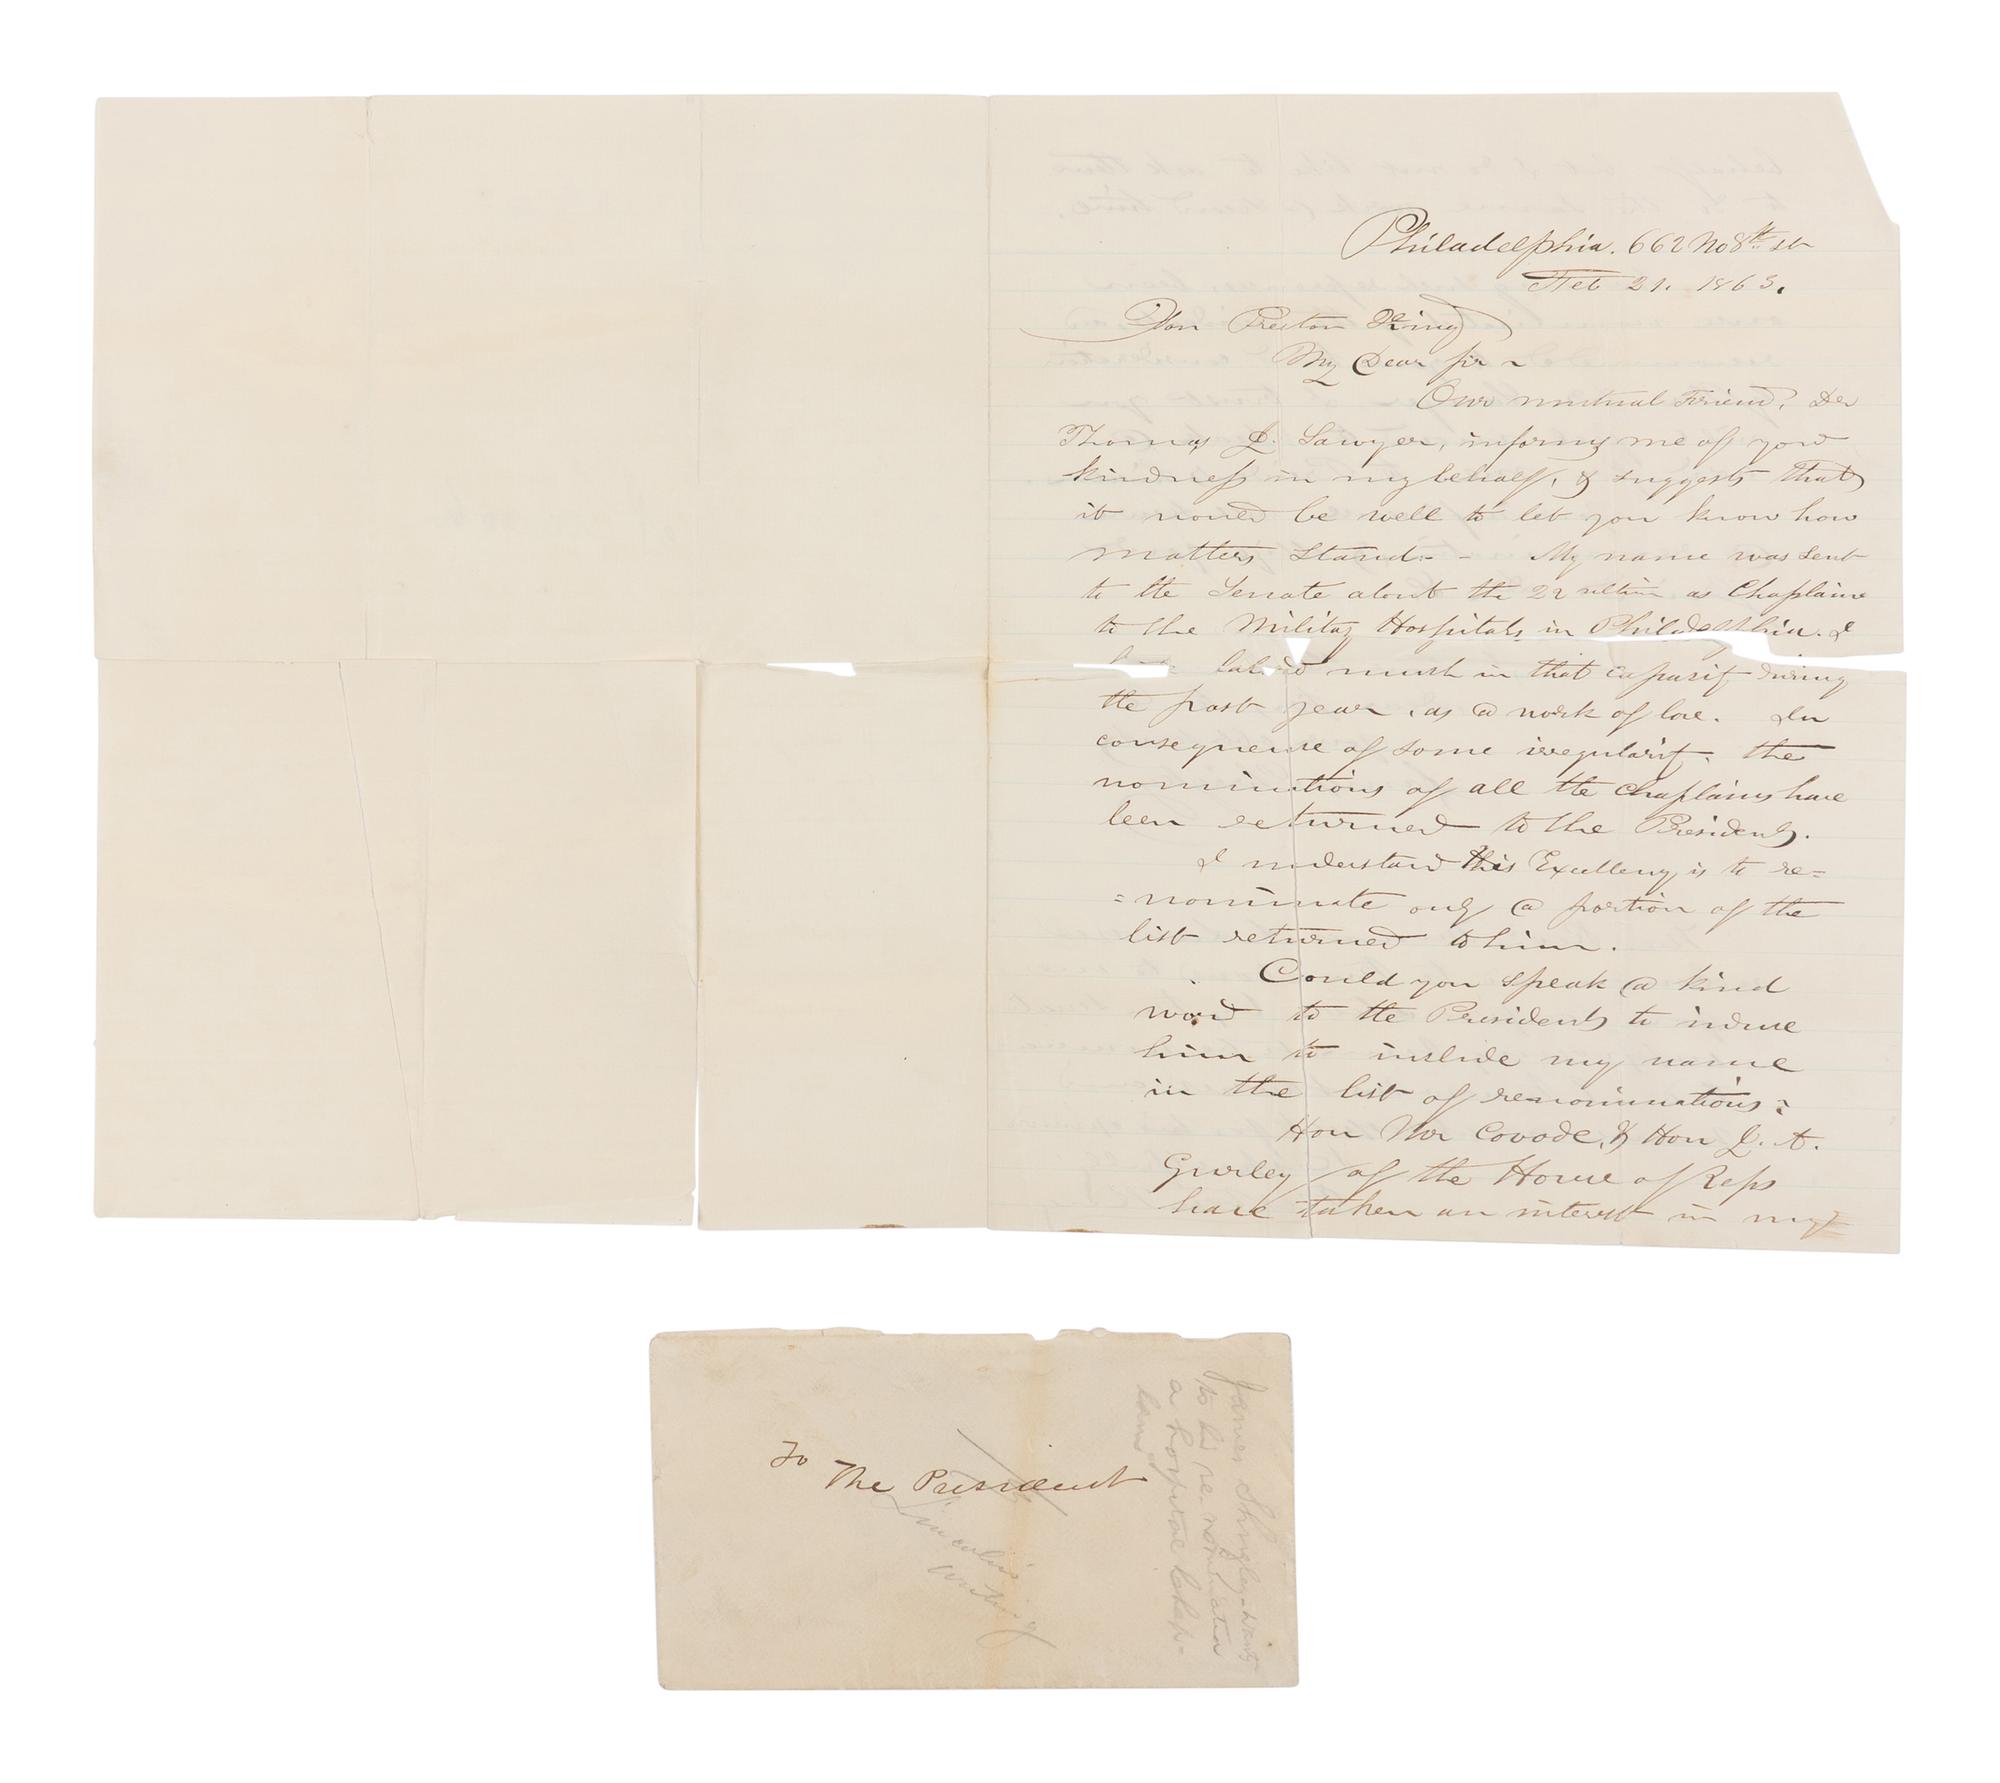 Philadelphia. 662 No 8th St
Feb 21. 1863.
Hon Preston King
My Dear Sir ~
Our mutual Friend, Dr
Thomas J. Sawyer, informs me of your
kindness in my behalf, & suggests that
it would be well to let you know how
matters stand. - My name was sent
to the Senate about the 22 ultim as Chaplain
to the Military Hospitals in Philadelphia. I
labored much in that capacity during
the past year, as a work of love. In
consequence of some irregularity, the
nominations of all the Chaplains have
been returned to the President.
I understand His Excellency is to re=
=nominate only a portion of the
list returned to him.
Could you speak a kind
word to the President to induce
him to include my name
in the list of renominations.
Hon Mr Covode, & Hon J. A.
Gurley of the House of Reps
have taken an interest in my
To
The President
Lincoln's
James Shrigley-wants
to be re-nomination
a hospital Chap-